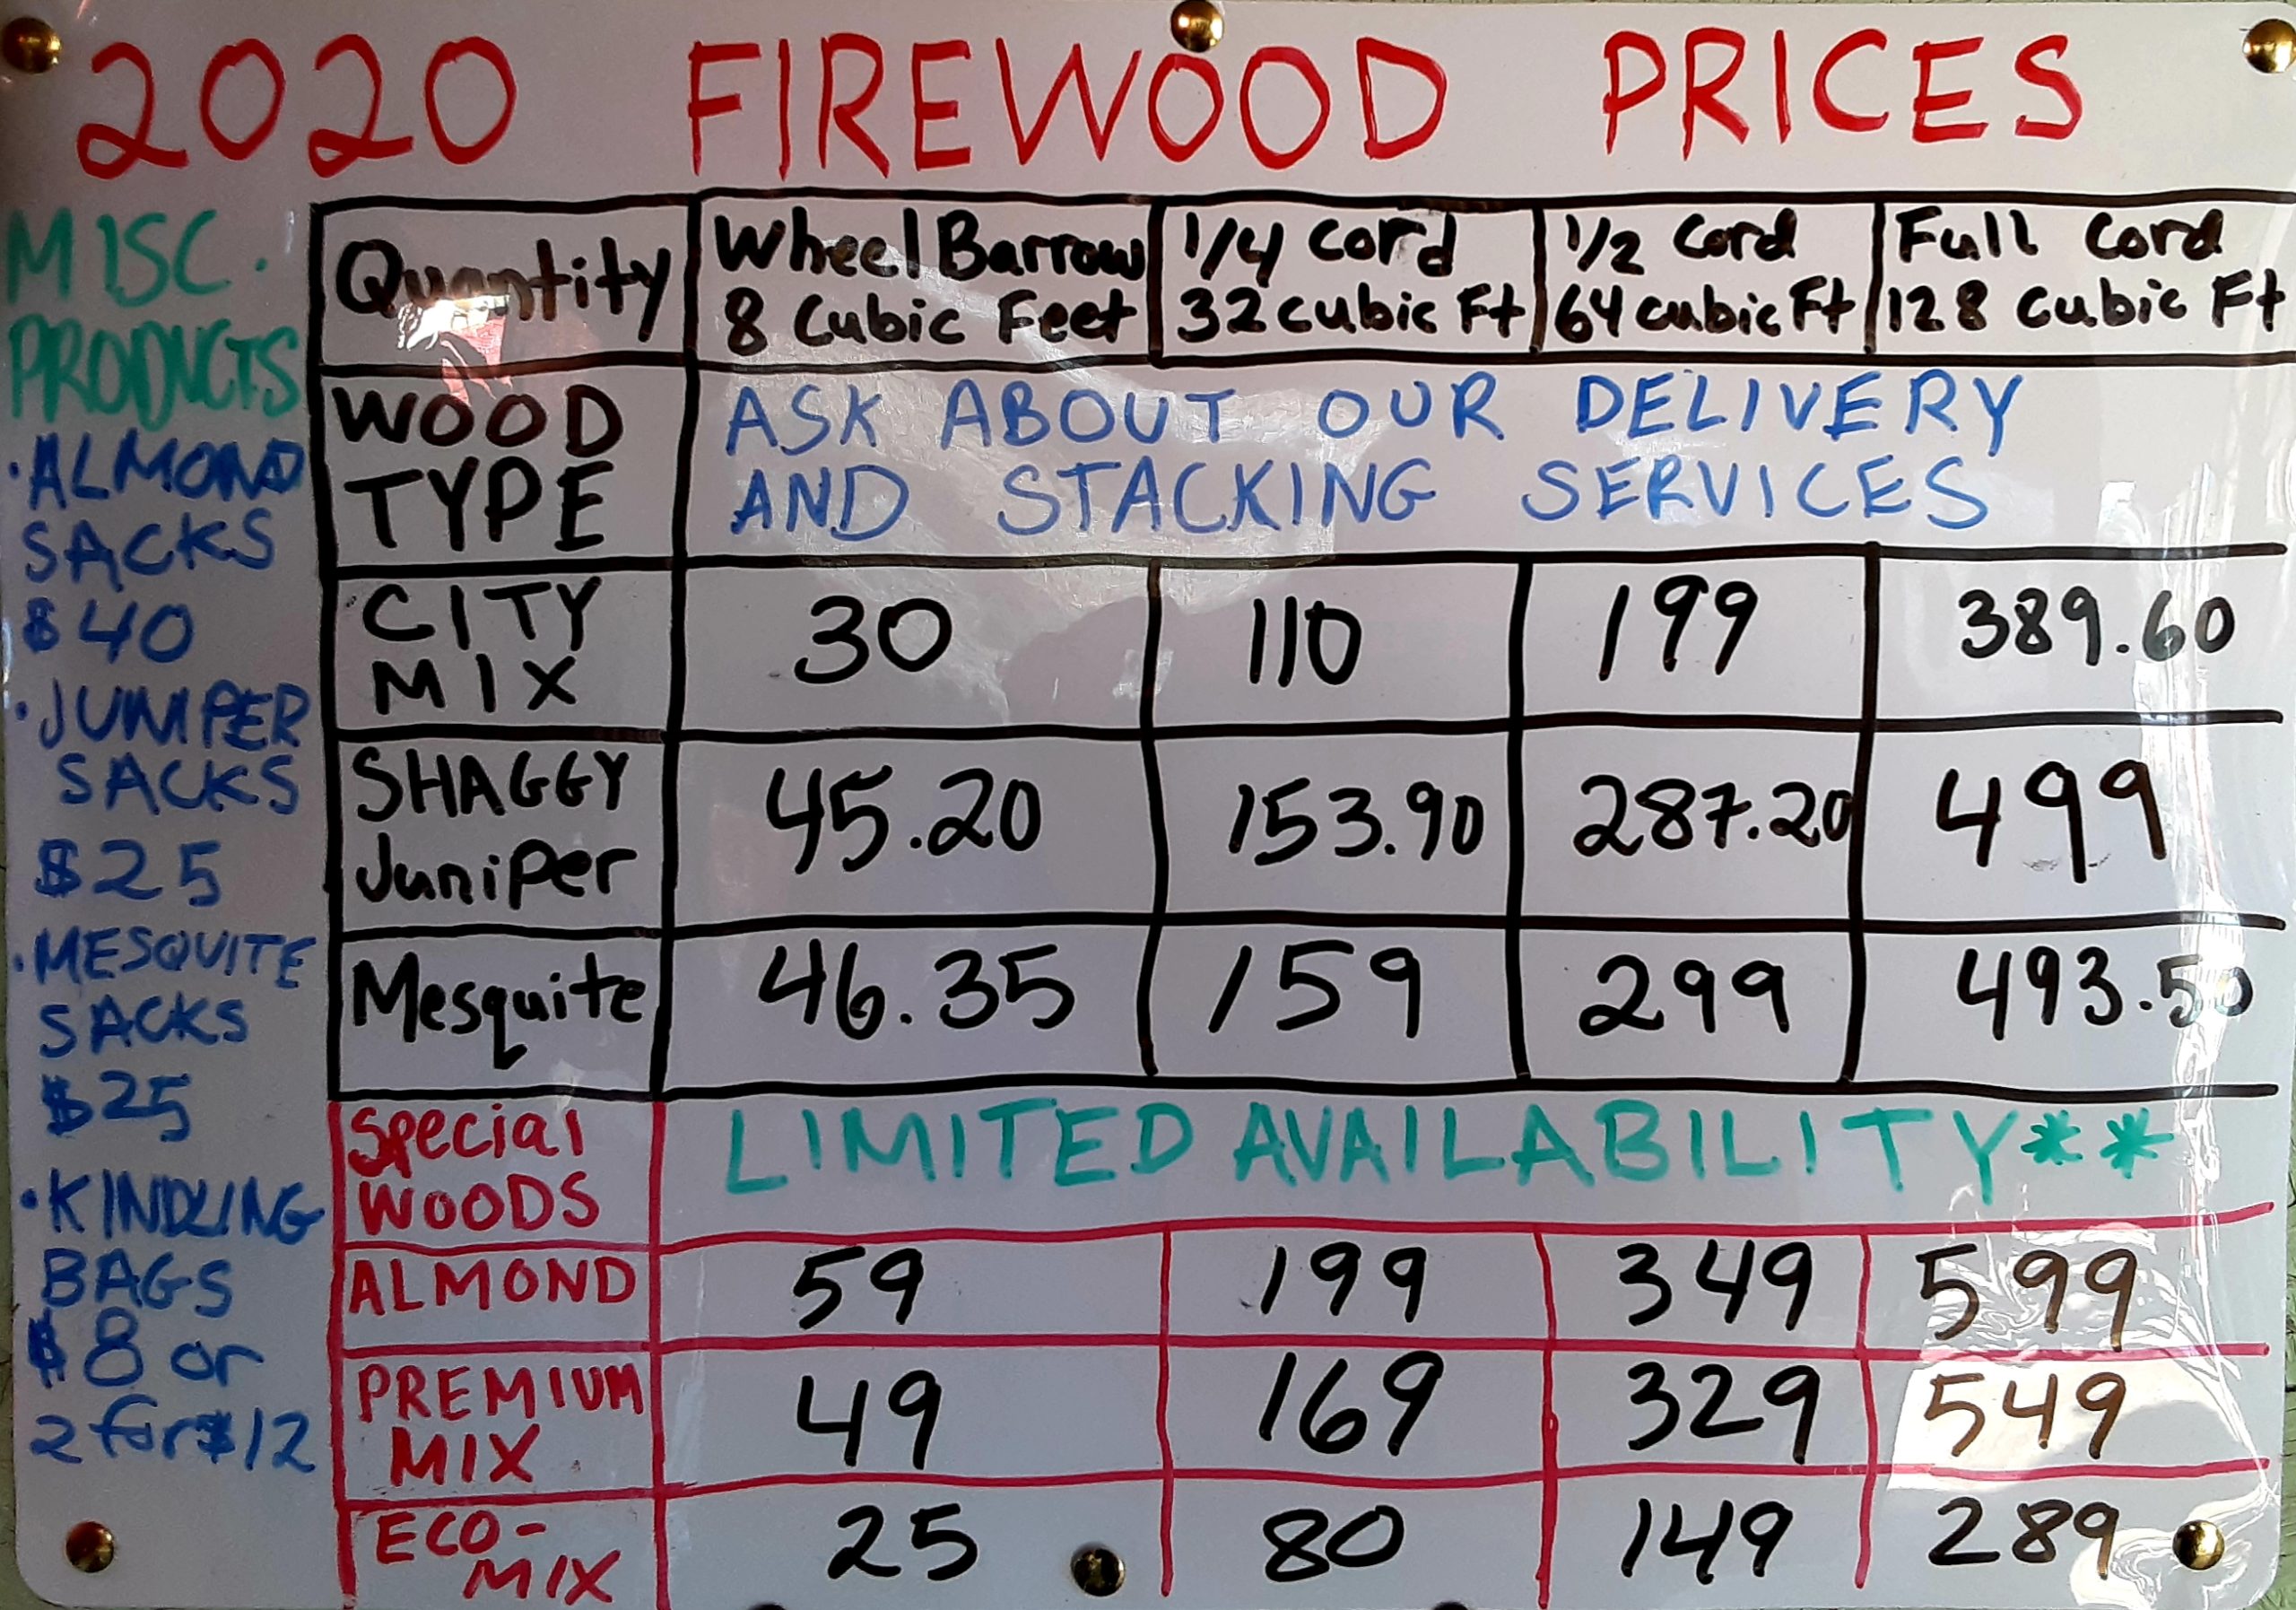 2020 FIREWOOD PRICES
MISC.
PRODUCTS
· ALMOND
SACKS
$40
· JUNIPER
SACKS
$25
· MESQUITE
SACKS
$25
· KINDLING
BAGS
$8 or
2 for $12
Quantity
Wheel Barrow
8 Cubic Feet
1/4 Cord
32 cubic Ft
1/2 Cord
64 cubic Ft
Full Cord
128 Cubic Ft
WOOD
TYPE
ASK ABOUT OUR DELIVERY
AND STACKING SERVICES
CITY
MIX
30 110 199 389.60
SHAGGY
Juniper
45.20 153.90 287.20 499
Mesquite 46.35 159 299 493.50
Special
WOODS
LIMITED AVAILABILITY**
ALMOND 59 199 349 599
PREMIUM
MIX
49 169 329 549
ECO-
MIX
25 80 149 289